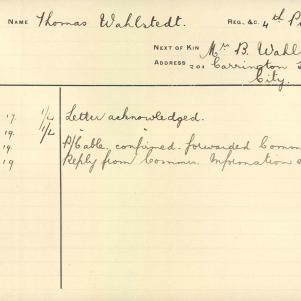 NAME Thomas Wahlstedt. REG., &C. 4th P
NEXT OF KIN Mrs B. Wahl
ADDRESS 201 Carrington
City.
17. 1/2 Letter acknowledged.
19. 1/2 "
19. P/Cable, confirmed. forwarded Comm
19 Reply from Commn. Information